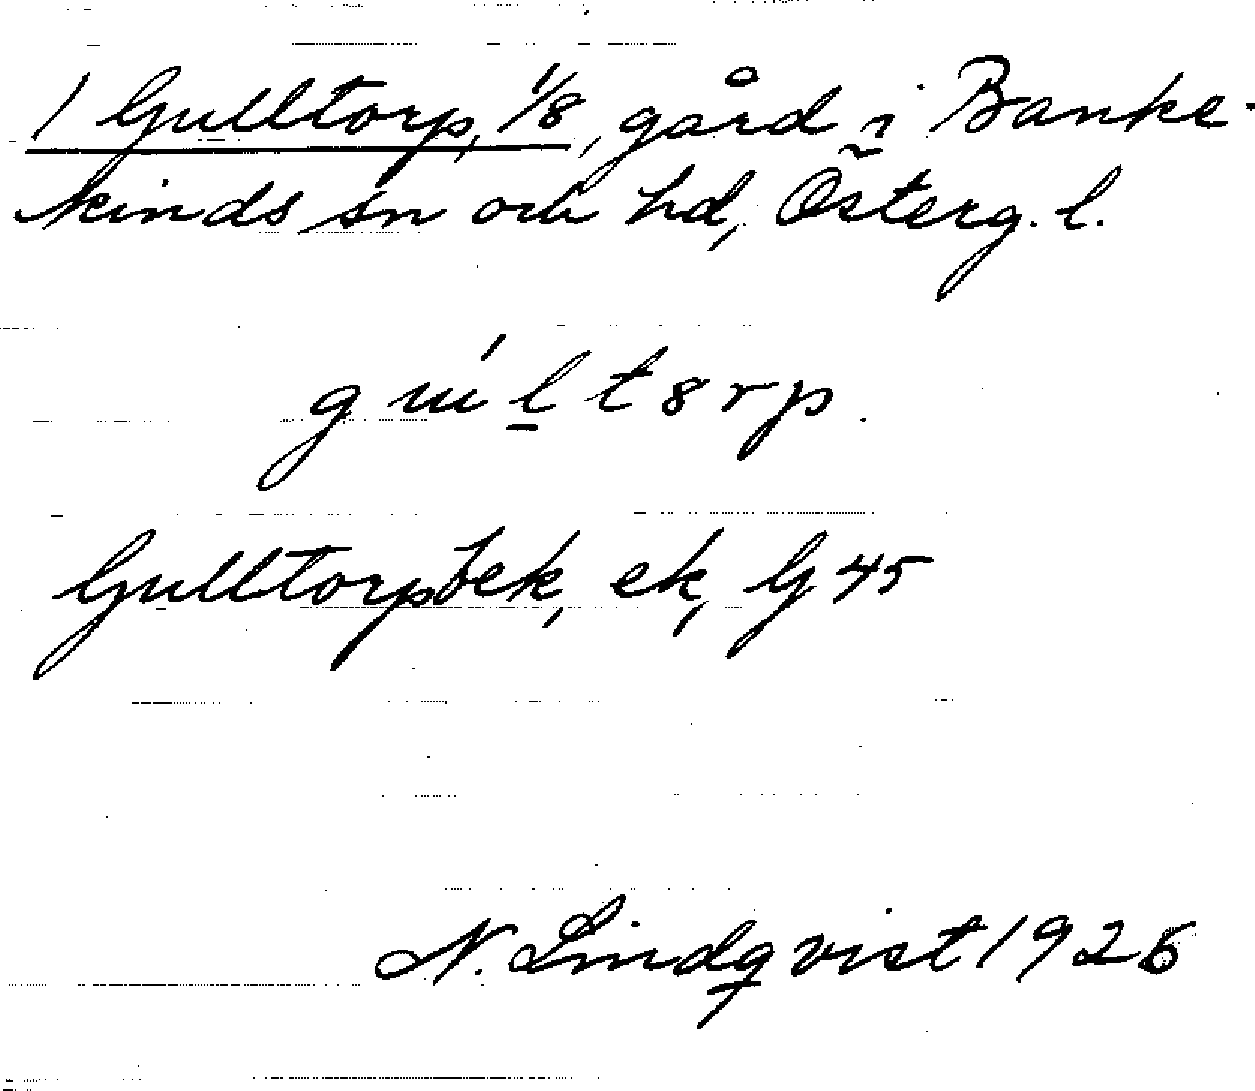 1 Gulltorp, 1/8, gård i Banke-
kinds sn och hd, Österg. l.
gu´l t8rp.
Gulltorpbek, ek, G 45
N. Lindqvist 1926